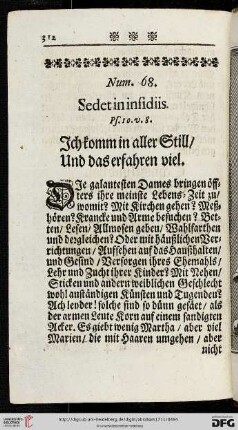 312
Num. 68.
Sedet in insidiis.
Ps. 10. v. 8.
Ich komm in aller Still/
Und das erfahren viel.
DIe galantesten Dames bringen öff-
ters ihre meinste Lebens-Zeit zu/
womit? Mit Kirchen gehen? Meß-
hören? Krancke und Arme besuchen? Bet-
ten/ Lesen/ Allmosen geben/ Wahlfarthen
und dergleichen? Oder mit häußlichen Ver-
richtungen/ Aufsehen auf das Haußhalten/
und Gesind/ Versorgen ihres Ehemahls/
Lehr und Zucht ihrer Kinder? Mit Nehen/
Sticken und andern weiblichen Geschlecht
wohl anständigen Künsten und Tugenden?
Ach leyder! solche sind so dünn gesäet/ als
der armen Leute Korn auf einem sandigten
Acker. Es giebt wenig Martha/ aber viel
Marien/ die mit Haaren umgehen/ aber
nicht